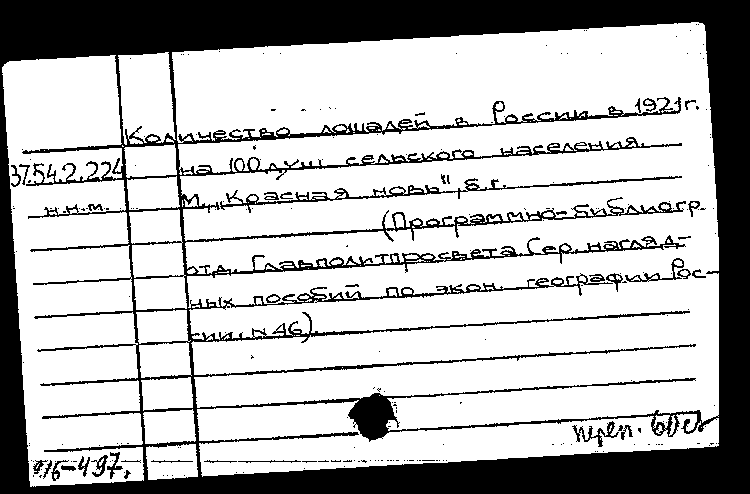 Количество лошадей в России в 1921г.
37.54.2.224 на 100 душ сельского населения.
н.н.м. М., „Красная новь", б.г.
(Программно-библиогр.
отд. Главполитпросвета. Сер. нагляд-
ных пособий по экон. географии Рос-
сии. N 46).
-497.